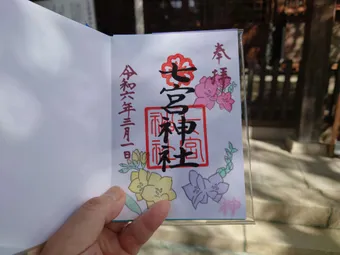 奉拝
七宮神社
令和六年三月一日
神